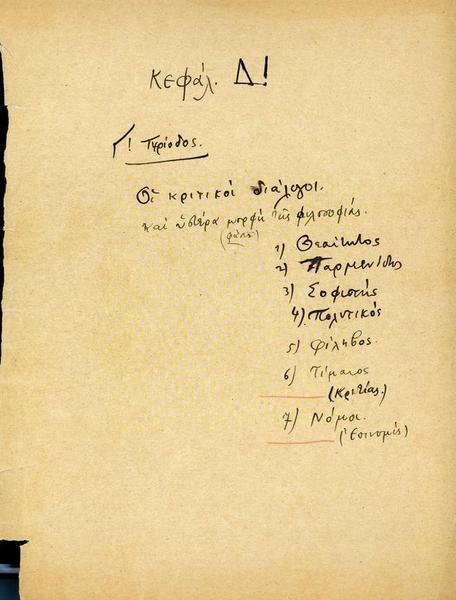 Κεφάλ. Δ!
Γ! Περίοδος.
Οἱ κριτικοί διάλογοι.
καί ὑστέρα μορφή τῆς φιλοσοφίας.
(φάσις)
1) Θεαίτητος
2) Παρμενίδης
3) Σοφιστής
4) Πολιτικός
5) Φίληβος.
6) Τίμαιος
(Κριτίας.)
7) Νόμοι.
(Ἐπινομίς)